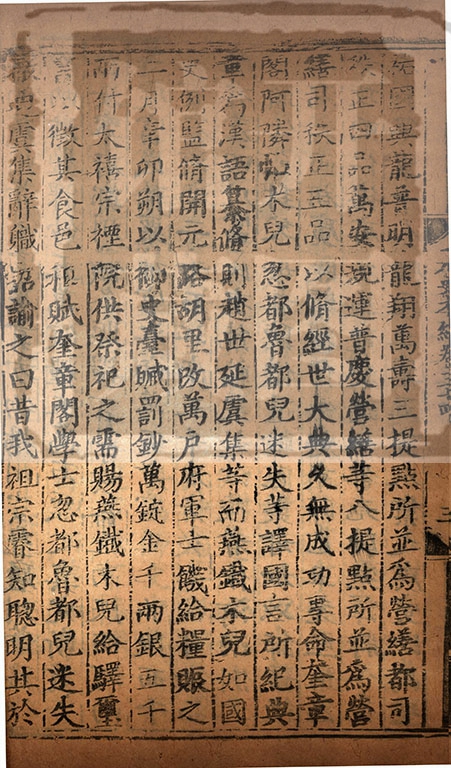 興國興龍普明龍翔萬壽三提點所並爲營繕都司
秩正四品萬安規運普慶營繕等八提點所並爲營
繕司秩正五品以脩經世大典久無成功專命奎章
閣阿隣帖木兒忽都魯都兒迷失等譯國言所紀典
章爲漢語纂脩則趙世延虞集等而燕鐵木兒如國
史例監脩開元路胡里改萬戶府軍士饑給糧賑之
二月辛卯朔以御史臺贓罰鈔萬錠金千兩銀五千
兩付太禧宗禋院供祭祀之需賜燕鐵木兒給驛璽
書以徵其食邑租賦奎章閣學士忽都魯都兒迷失
撒迪虞集辭職詔諭之曰昔我祖宗睿知聰明其於